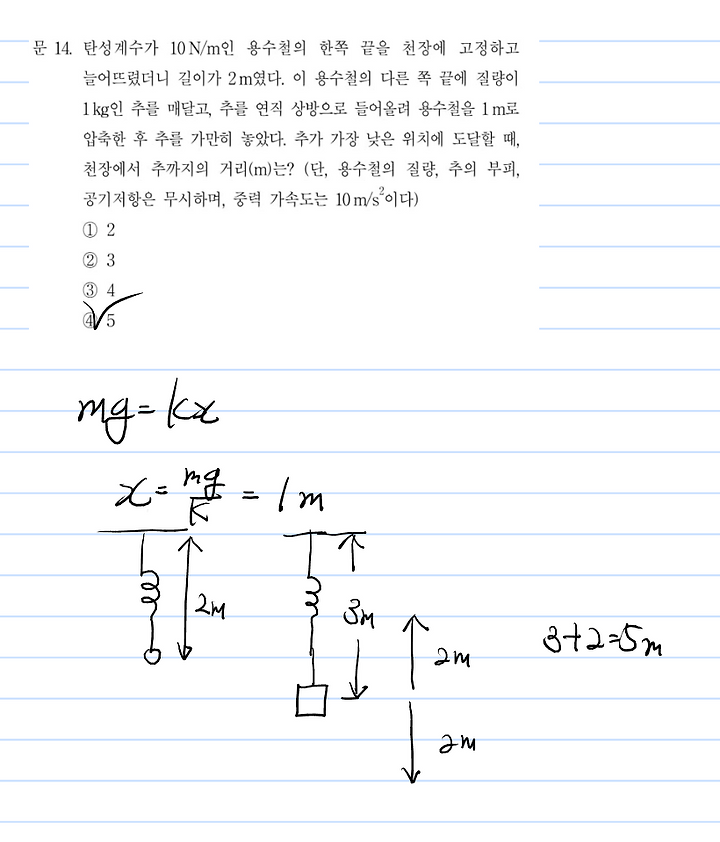 문 14. 탄성계수가 10 N/m인 용수철의 한쪽 끝을 천장에 고정하고
늘어뜨렸더니 길이가 2 m였다. 이 용수철의 다른 쪽 끝에 질량이
1 kg인 추를 매달고, 추를 연직 상방으로 들어올려 용수철을 1 m로
압축한 후 추를 가만히 놓았다. 추가 가장 낮은 위치에 도달할 때,
천장에서 추까지의 거리(m)는? (단, 용수철의 질량, 추의 부피,
공기저항은 무시하며, 중력 가속도는 10 m/s²이다)
① 2
② 3
③ 4
④ 5
mg = kx
x = mg/K = 1 m
2m
3m
2m
2m
3+2=5m